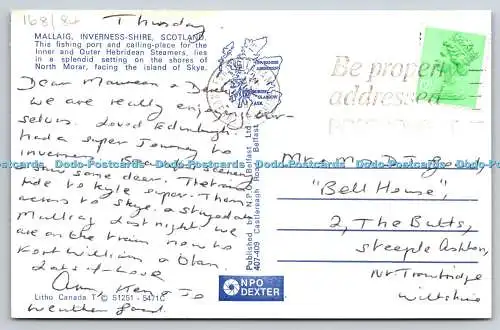 168/84
Thursday
MALLAIG, INVERNESS-SHIRE, SCOTLAND.
This fishing port and calling-place for the
Inner and Outer Hebridean Steamers, lies
in a splendid setting on the shores of
North Morar, facing the island of Skye.
Dear Maureen & Derek
we are really enjoying our-
selves. Loved Edinburgh.
had a super journey to
Inverness
saw some deer. The train
ride to Kyle super. Then
across to Skye. & stayed at
Mallaig last night. We
are on the train now to
Fort William & Oban.
Lots of love
Ann,
Weather good.
Litho Canada T © 51251 - 5471C
Published by N.P.O. Belfast Ltd.
407-409 Castlereagh Road, Belfast
NPO
DEXTER
Be properly
addressed
Mr & M D
"Bell House",
2, The Butts,
Steeple Ashton,
Nr. Trowbridge
Wiltshire
Docs-Postcards Docs-Postcards Docs-Postcards Docs-Postcards